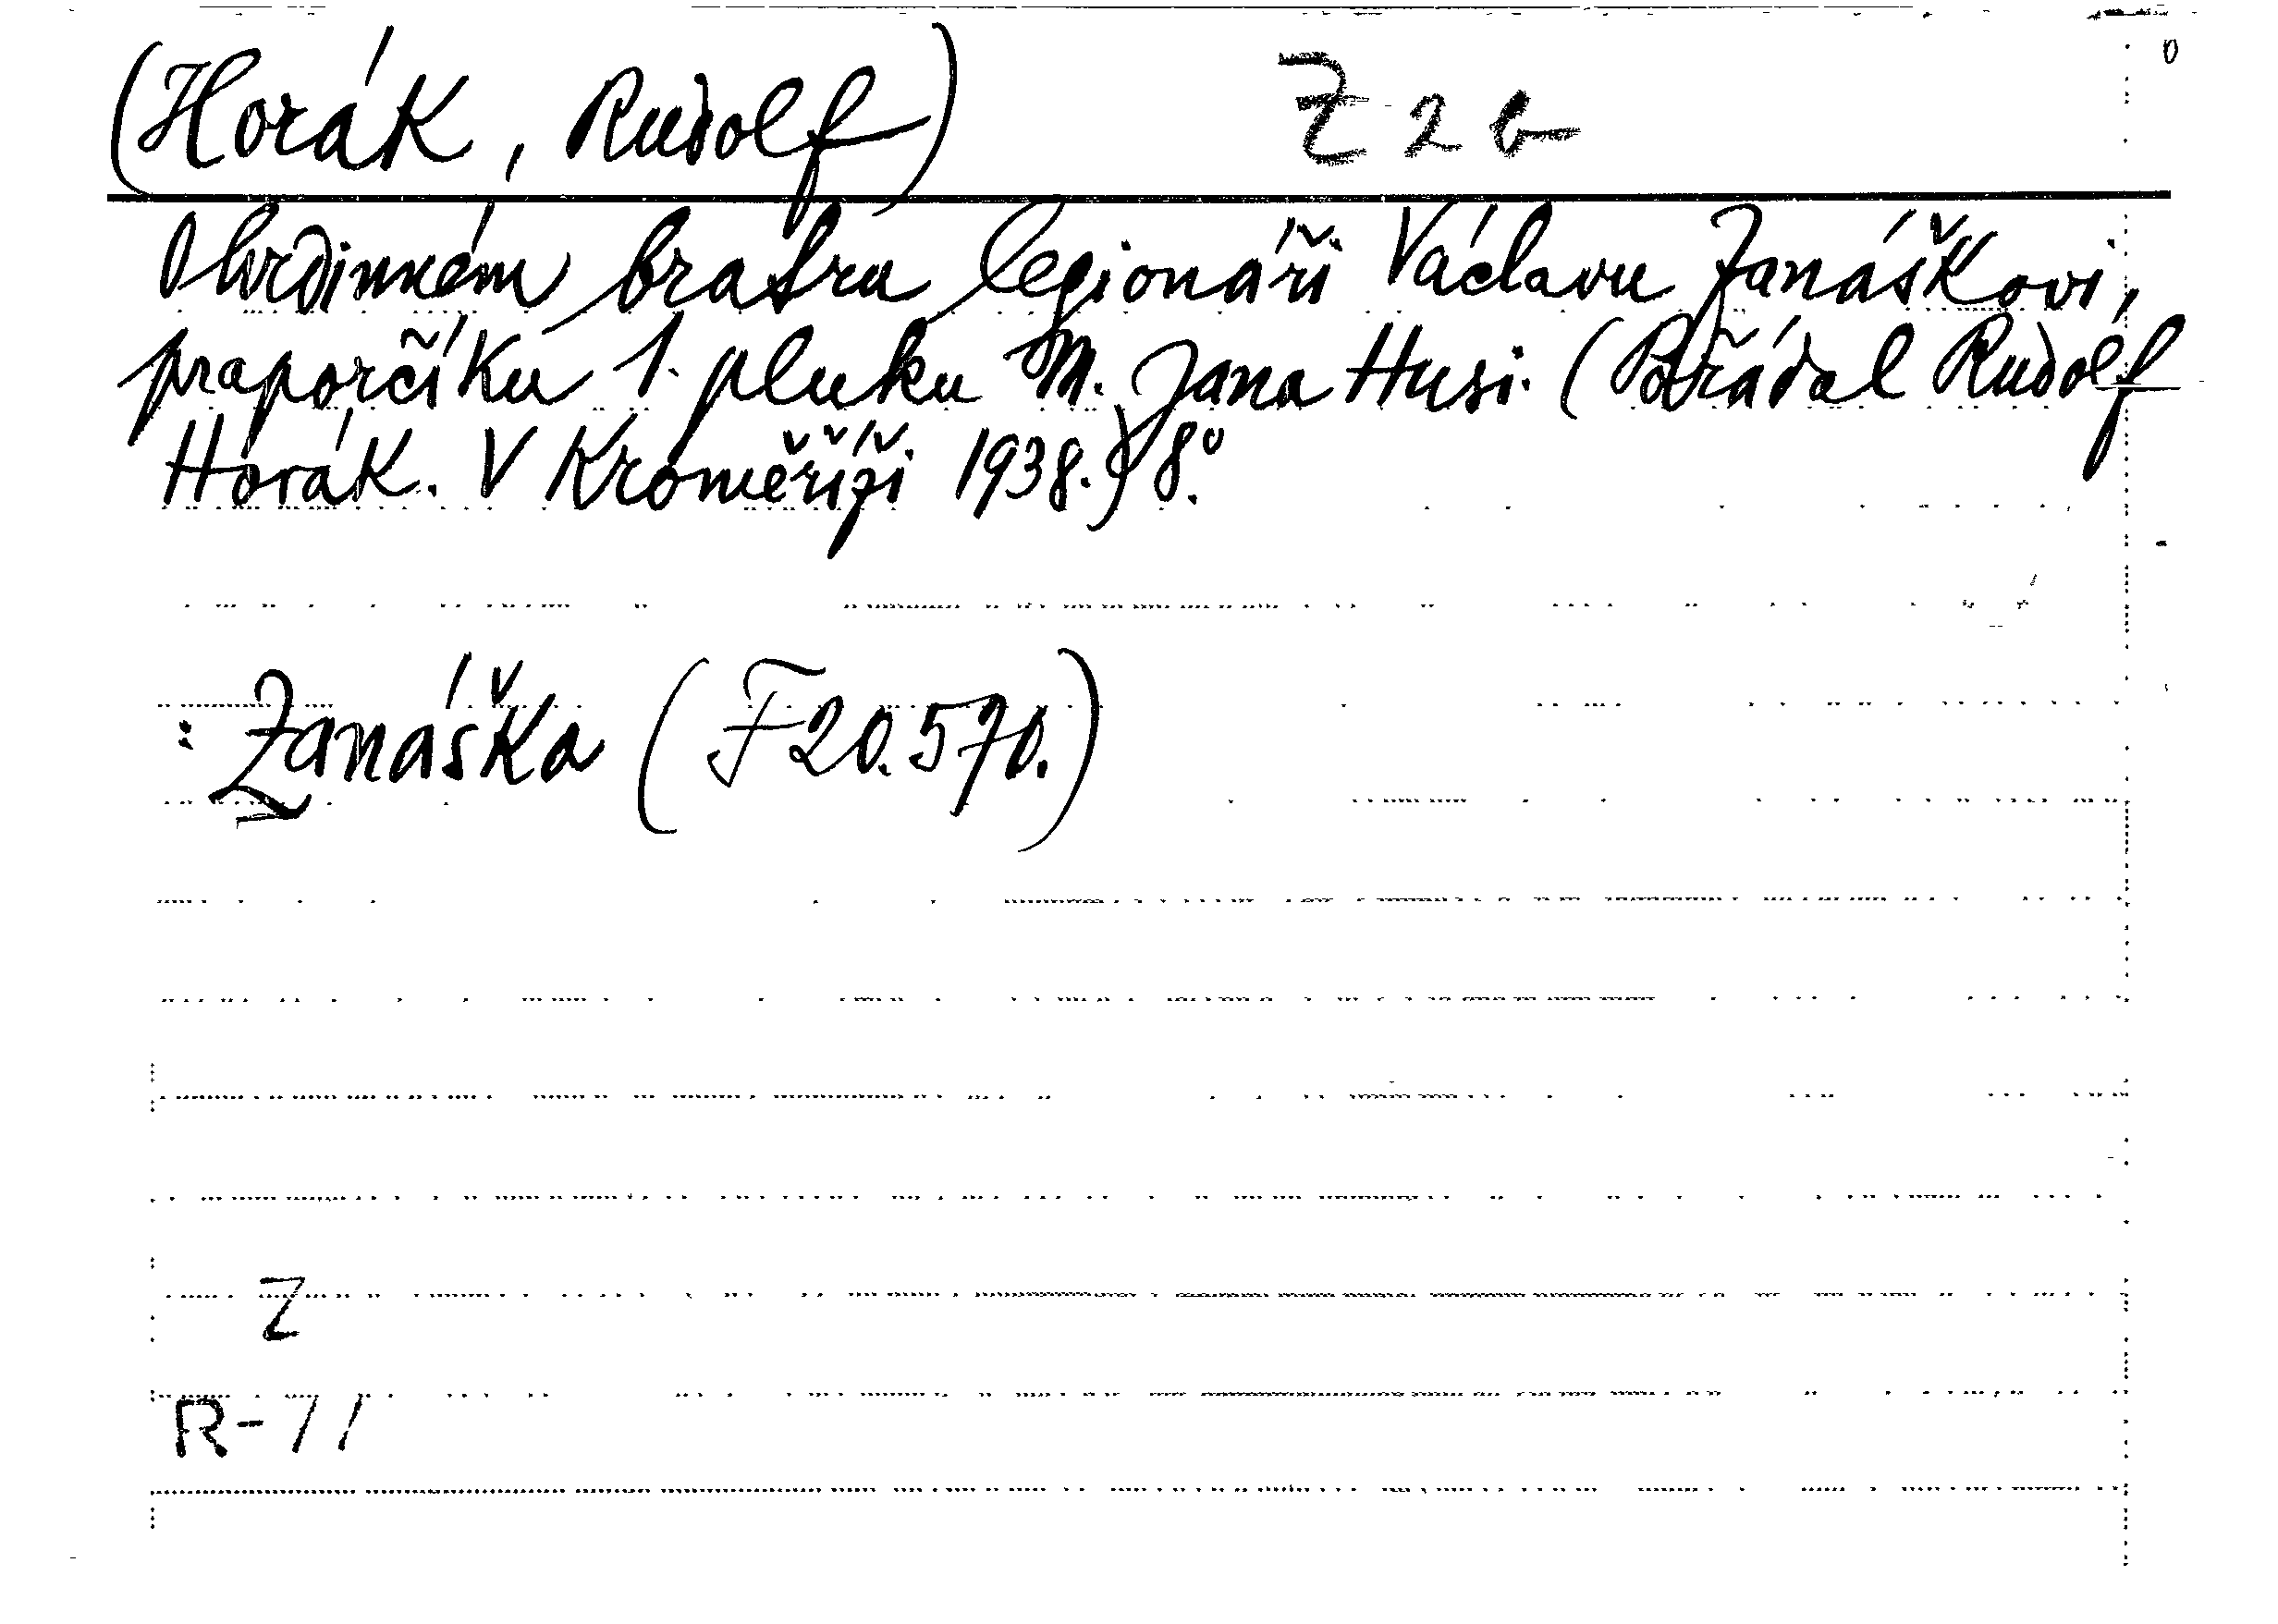 (Horák, Rudolf) Z 2 b
O hrdinném bratru legionáři Václavu Janáškovi,
praporčíku 1. pluku M. Jana Husi. (Pořádal Rudolf
Horák. V Kroměříži 1938.) 8°.
: Žanáška (F 20.570.)
Z
R-71